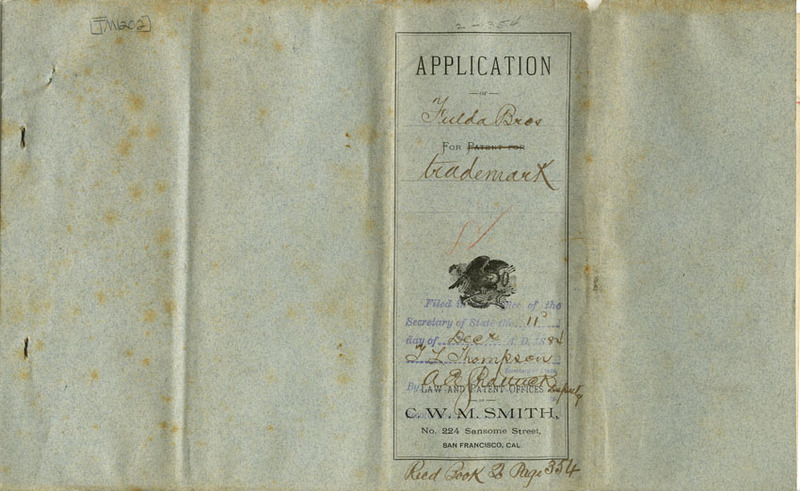 TM602
2-354
APPLICATION
OF
Fulda Bros
FOR PATENT FOR
trademark
Filed in Office of the
Secretary of State the 11
day of Decr A. D. 1884
T L Thompson
Secretary of State
By
LAW AND PATENT OFFICES
Deputy
OF
C. W. M. SMITH,
No. 224 Sansome Street,
SAN FRANCISCO, CAL
Recd Book 2 Page 354